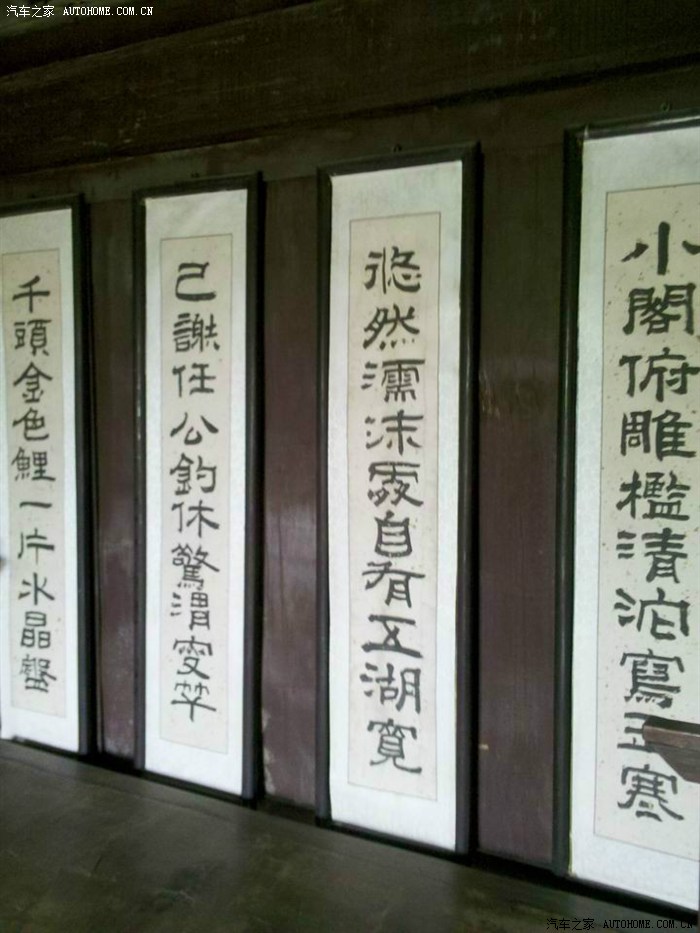 汽车之家 AUTOHOME.COM.CN
小閣俯雕檻清沱寫玉寒
悠然濡沫處自有五湖寬
已謝任公釣休驚渭叟竿
千頭金色鯉一片水晶盤
汽车之家 AUTOHOME.COM.CN